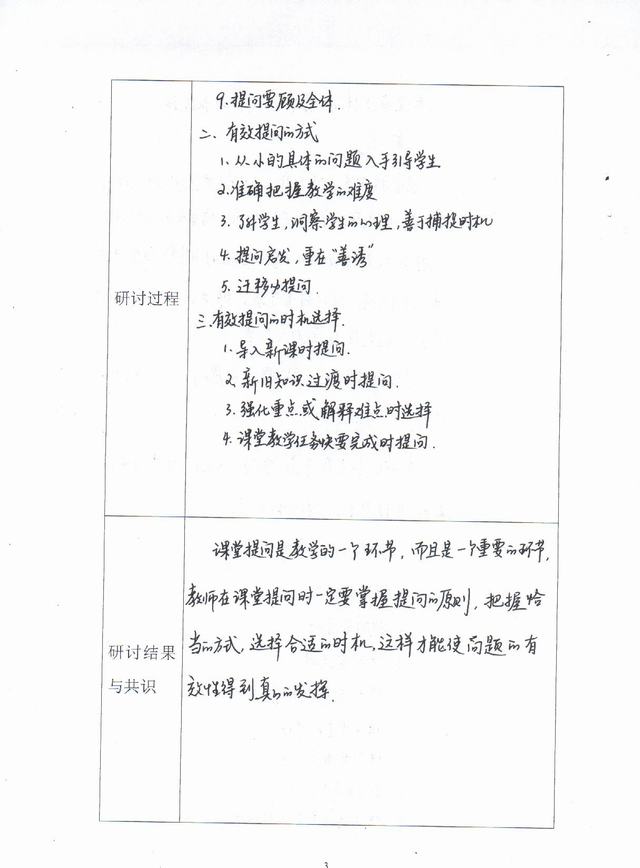 9.提问要顾及全体.
二、有效提问的方式
1.从小的具体的问题入手引导学生
2.准确把握教学的难度
3.了解学生,洞察学生的心理,善于捕捉时机
4.提问启发,重在“善诱”
5.迁移性提问.
研讨过程
三.有效提问的时机选择.
1.导入新课时提问.
2.新旧知识过渡时提问.
3.强化重点或解释难点时选择
4.课堂教学任务快要完成时提问.
课堂提问是教学的一个环节,而且是一个重要的环节,
教师在课堂提问时一定要掌握提问的原则,把握恰
当的方式,选择合适的时机,这样才能使问题的有
效性得到真的发挥.
研讨结果
与共识
3